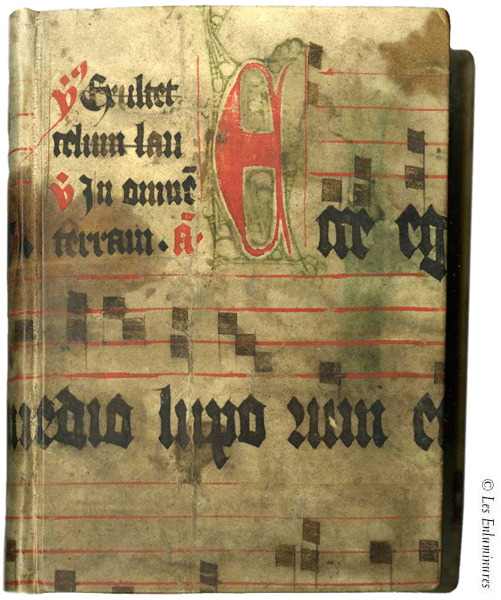 ℣ Exultet
celum lau
℣ In omnē
terram. ā.
Ecce eg
medio lupo rum e
© Les Enluminures